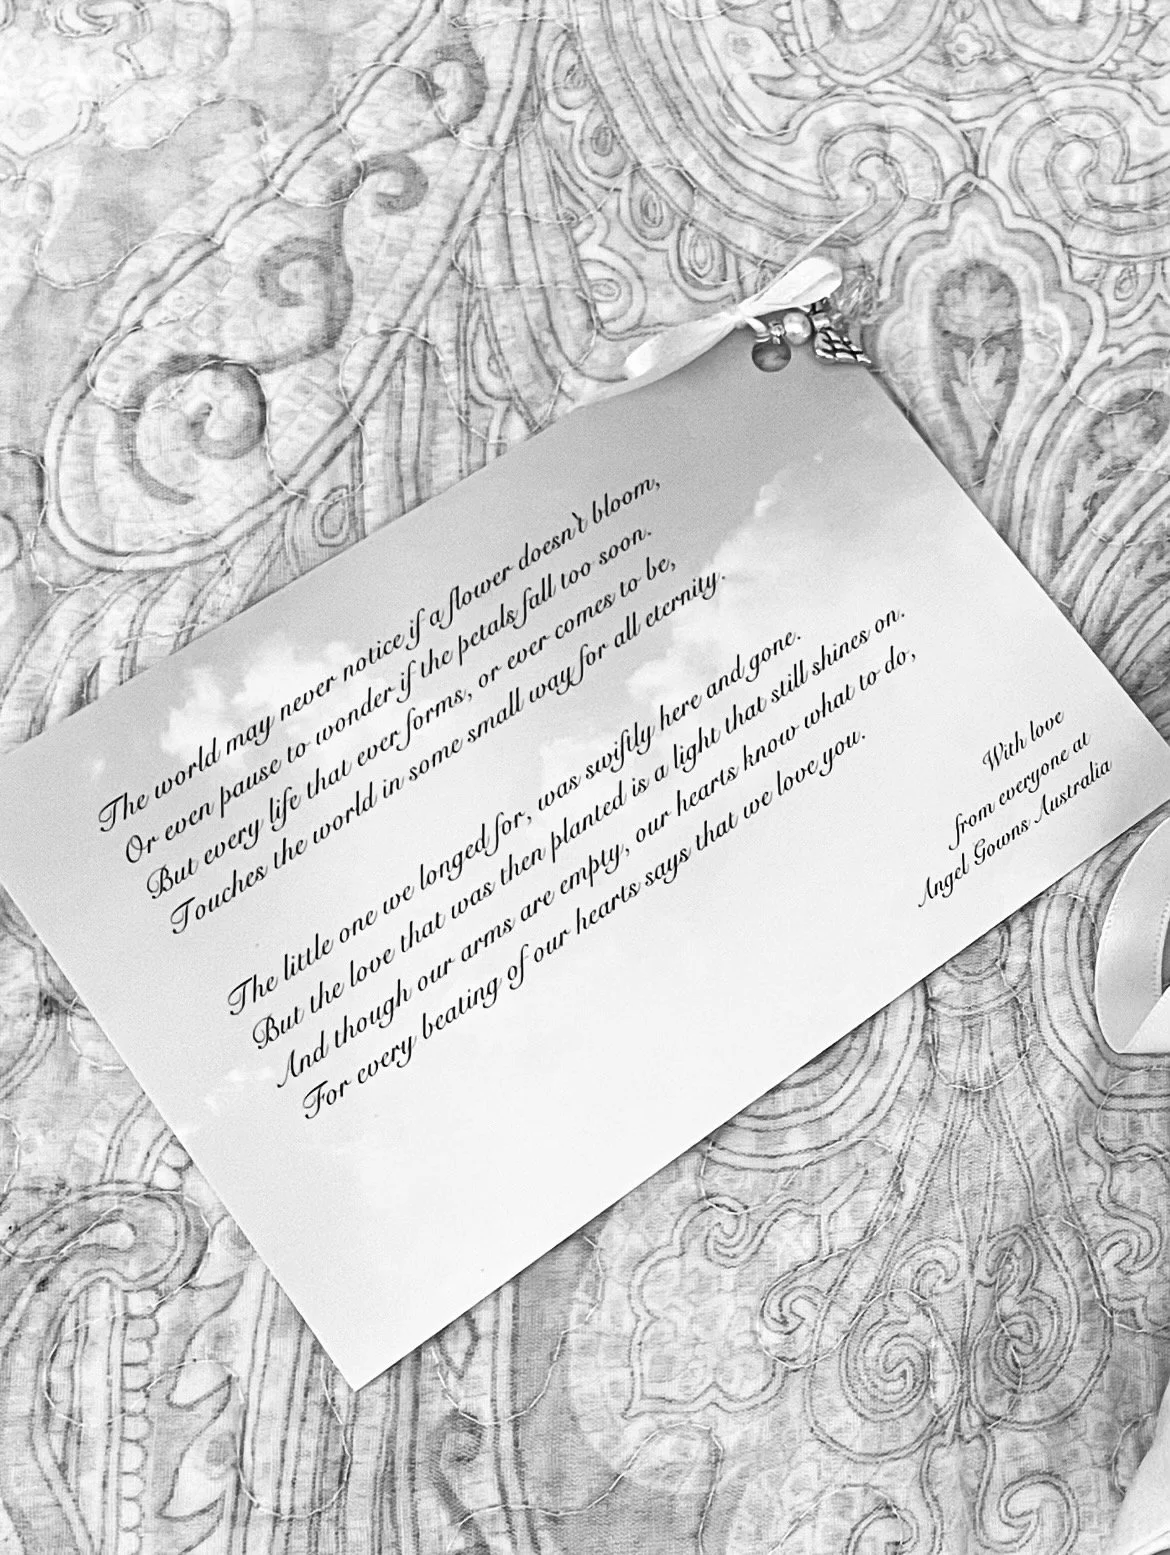 The world may never notice if a flower doesn't bloom,
Or even pause to wonder if the petals fall too soon.
But every life that ever forms, or ever comes to be,
Touches the world in some small way for all eternity.
The little one we longed for, was swiftly here and gone.
But the love that was then planted is a light that still shines on.
And though our arms are empty, our hearts know what to do,
For every beating of our hearts says that we love you.
With love
from everyone at
Angel Gowns Australia